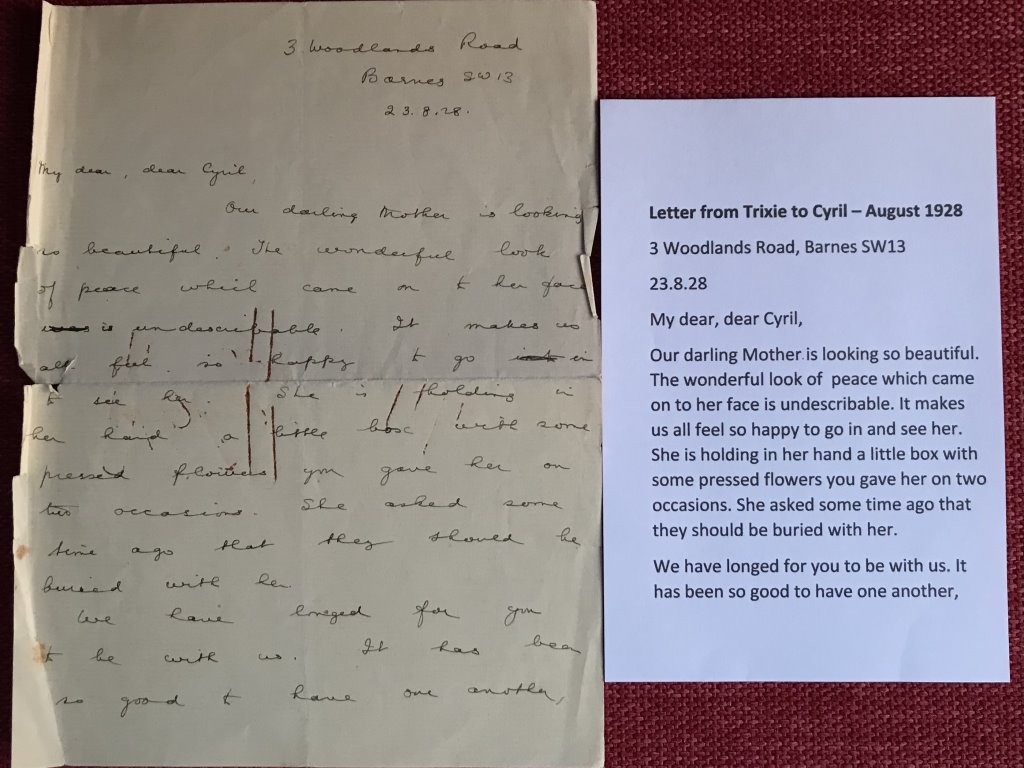 3 Woodlands Road
Barnes SW13
23.8.28.
My dear, dear Cyril,
Our darling Mother is looking
so beautiful. The wonderful look
of peace which came on to her face
is undescribable. It makes us
all feel so happy to go in
to see her. She is holding in
her hand a little box with some
pressed flowers you gave her on
two occasions. She asked some
time ago that they should be
buried with her
We have longed for you
to be with us. It has been
so good to have one another,
Letter from Trixie to Cyril – August 1928
3 Woodlands Road, Barnes SW13
23.8.28
My dear, dear Cyril,
Our darling Mother is looking so beautiful.
The wonderful look of peace which came
on to her face is undescribable. It makes
us all feel so happy to go in and see her.
She is holding in her hand a little box with
some pressed flowers you gave her on two
occasions. She asked some time ago that
they should be buried with her.
We have longed for you to be with us. It
has been so good to have one another,